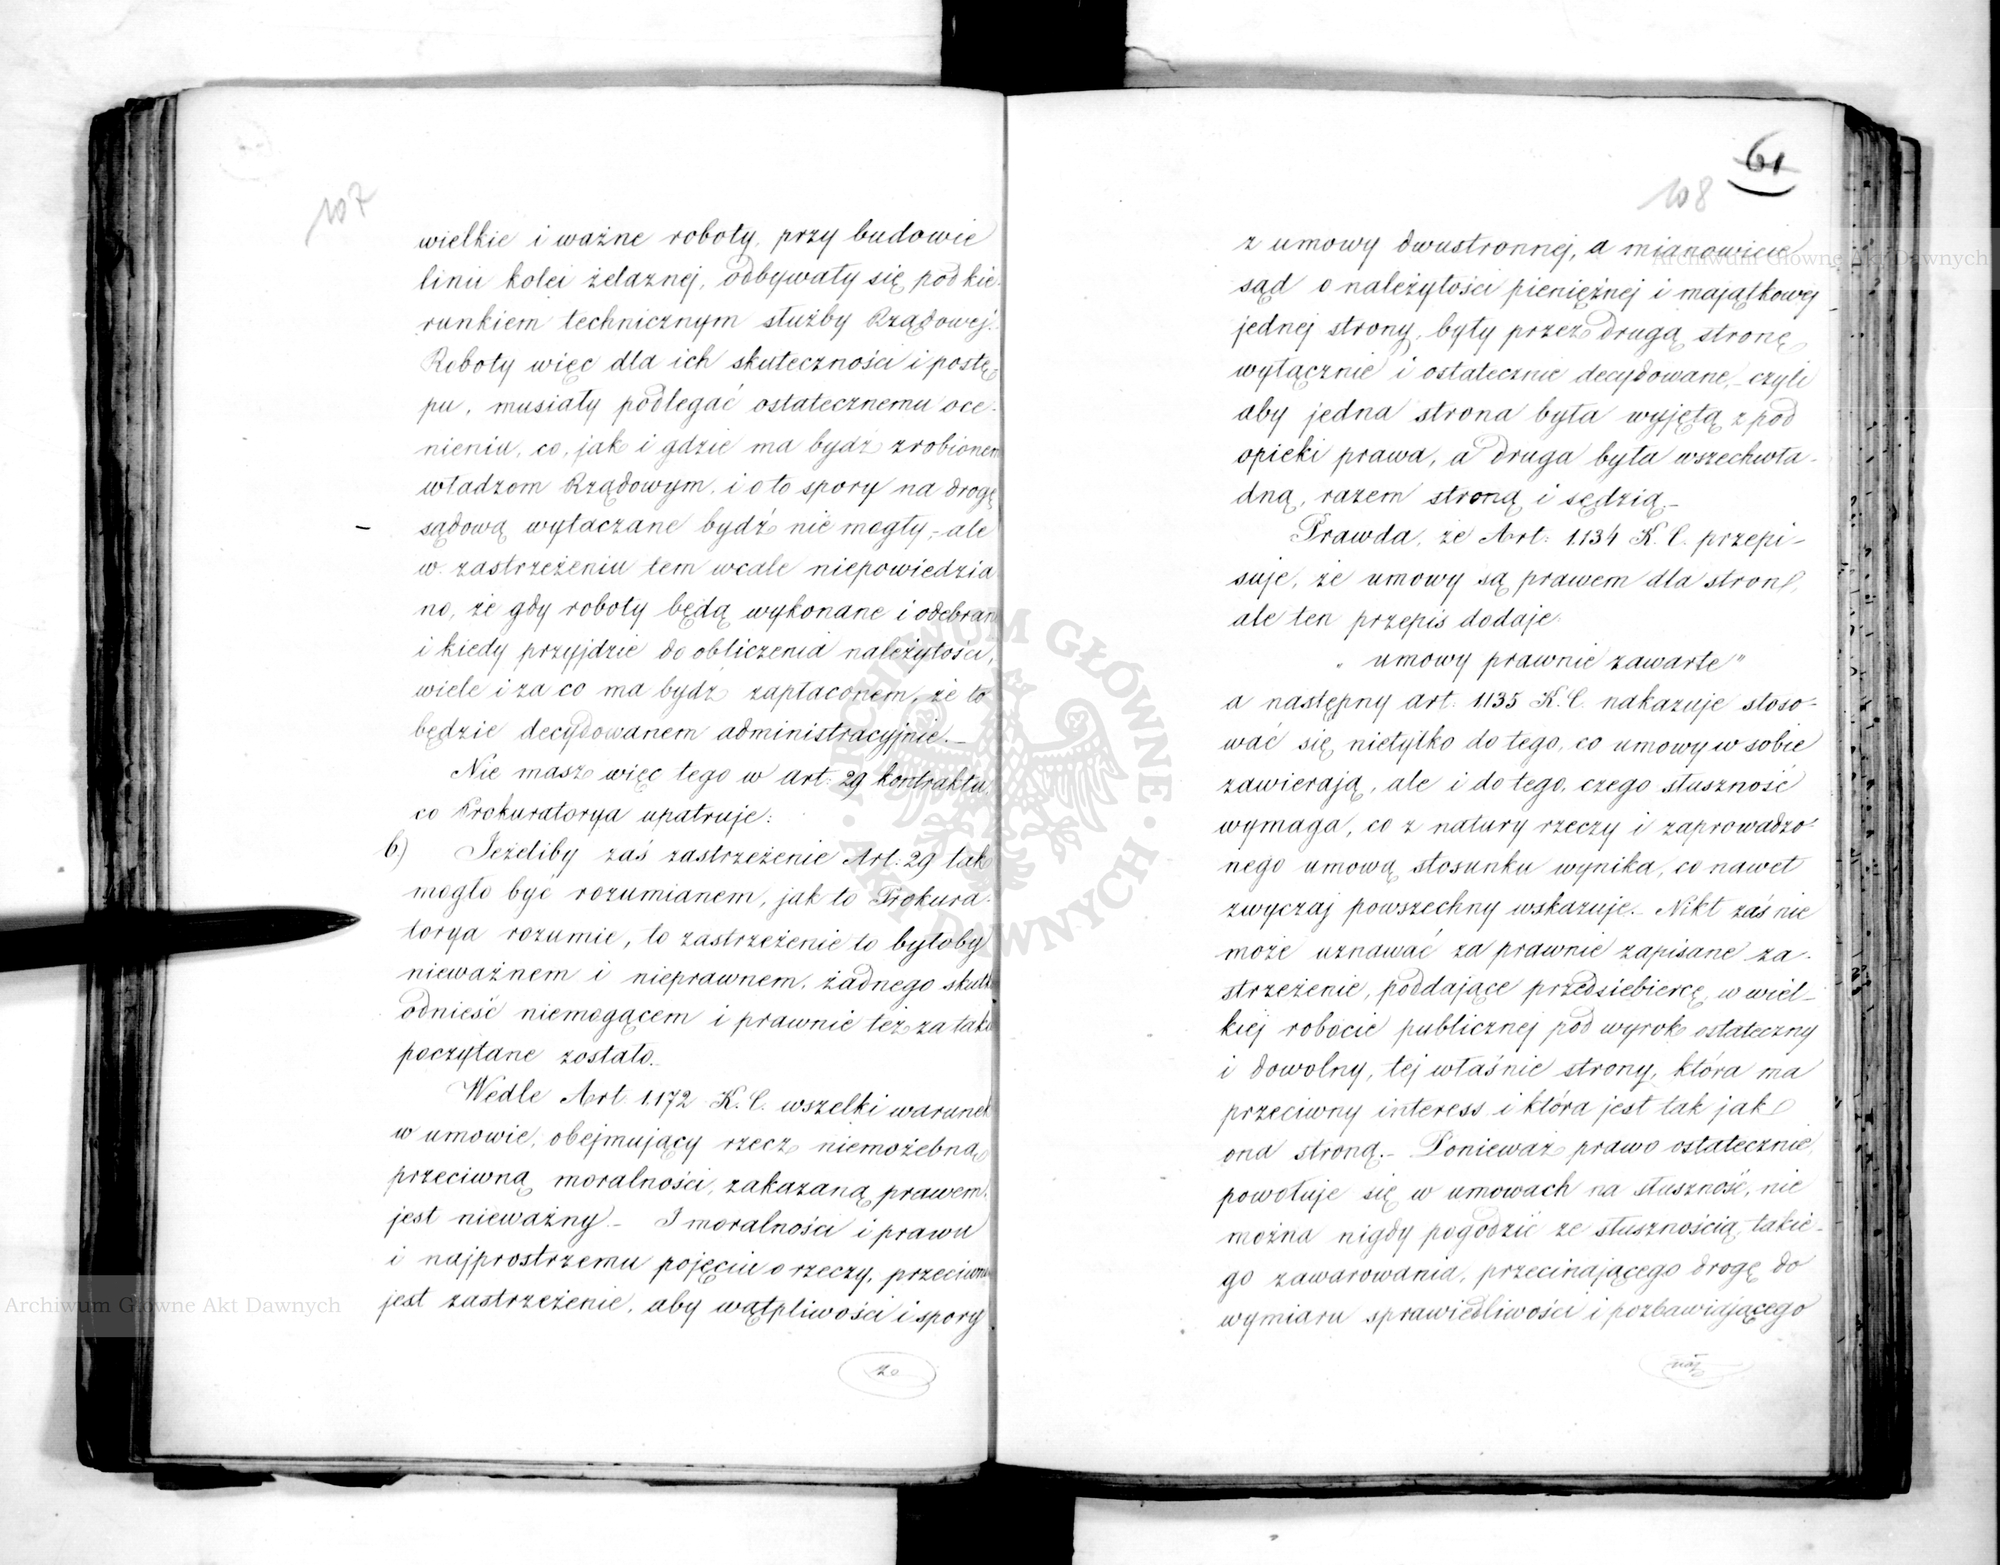 107
wielkie i ważne roboty, przy budowie
linii kolei żelaznej, odbywały się pod kie-
runkiem technicznym służby Rządowej.
Roboty więc dla ich skuteczności i postę-
pu, musiały podlegać ostatecznemu oce-
nieniu, co, jak i gdzie ma bydź zrobionem
władzom Rządowym, i o to spory na drogę
sądową wytaczane bydź nie mogły, - ale
w zastrzeżeniu tem wcale niepowiedzia
no, że gdy roboty będą wykonane i odebran
i kiedy przyjdzie do obliczenia należytości,
wiele i za co ma bydz zapłaconem, że to
będzie decydowanem administracyjnie. -
Nie masz więc tego w art: 29 kontraktu
co Prokuratorya upatruje:
b.) Jeżeliby zaś zastrzeżenie Art: 29 tak
mogło być rozumianem, jak to Prokura-
torya rozumie, to zastrzeżenie to byłoby
nieważnem i nieprawnem, żadnego skutk
odnieść niemogącem i prawnie też za taki
poczytane zostało. -
Wedle Art. 1172 K. C. wszelki warunek
w umowie, obejmujący rzecz niemożebną
przeciwną moralności, zakazaną prawem,
jest nieważny - I moralności i prawu
i najprostrzemu pojęciu o rzeczy, przeciwn
jest zastrzeżenie, aby wątpliwości i spory
zo
61
108
z umowy dwustronnej, a mianowicie
sąd o należytości pieniężnej i majątkowej
jednej strony, były przez drugą stronę
wyłącznie i ostatecznie decydowane, - czyli
aby jedna strona była wyjętą z pod
opieki prawa, a druga była wszechwła-
dną, razem stroną i sędzią. -
Prawda, że Art: 1134 K. C. przepi-
suje, że umowy są prawem dla stron,
ale ten przepis dodaje:
„umowy prawnie zawarte"
a następny art: 1135 K. C. nakazuje stoso-
wać się nietylko do tego, co umowy w sobie
zawierają, ale i do tego, czego słuszność
wymaga, co z natury rzeczy i zaprowadzo-
nego umową stosunku wynika, co nawet
zwyczaj powszechny wskazuje. - Nikt zaś nie
może uznawać za prawnie zapisane za-
strzeżenie, poddające przedsiebiercę, w wiel-
kiej robocie publicznej pod wyrok ostateczny
i dowolny, tej właśnie strony, która ma
przeciwny interess i która jest tak jak
ona stroną. - Ponieważ prawo ostatecznie
powołuje się w umowach na słuszność, nie
można nigdy pogodzić ze słusznością, takie-
go zawarowania, przecinającego drogę do
wymiaru sprawiedliwości i pozbawiającego
Archiwum Główne Akt Dawnych
Archiwum Główne Akt Dawnych
ARCHIWUM GŁÓWNE AKT DAWNYCH